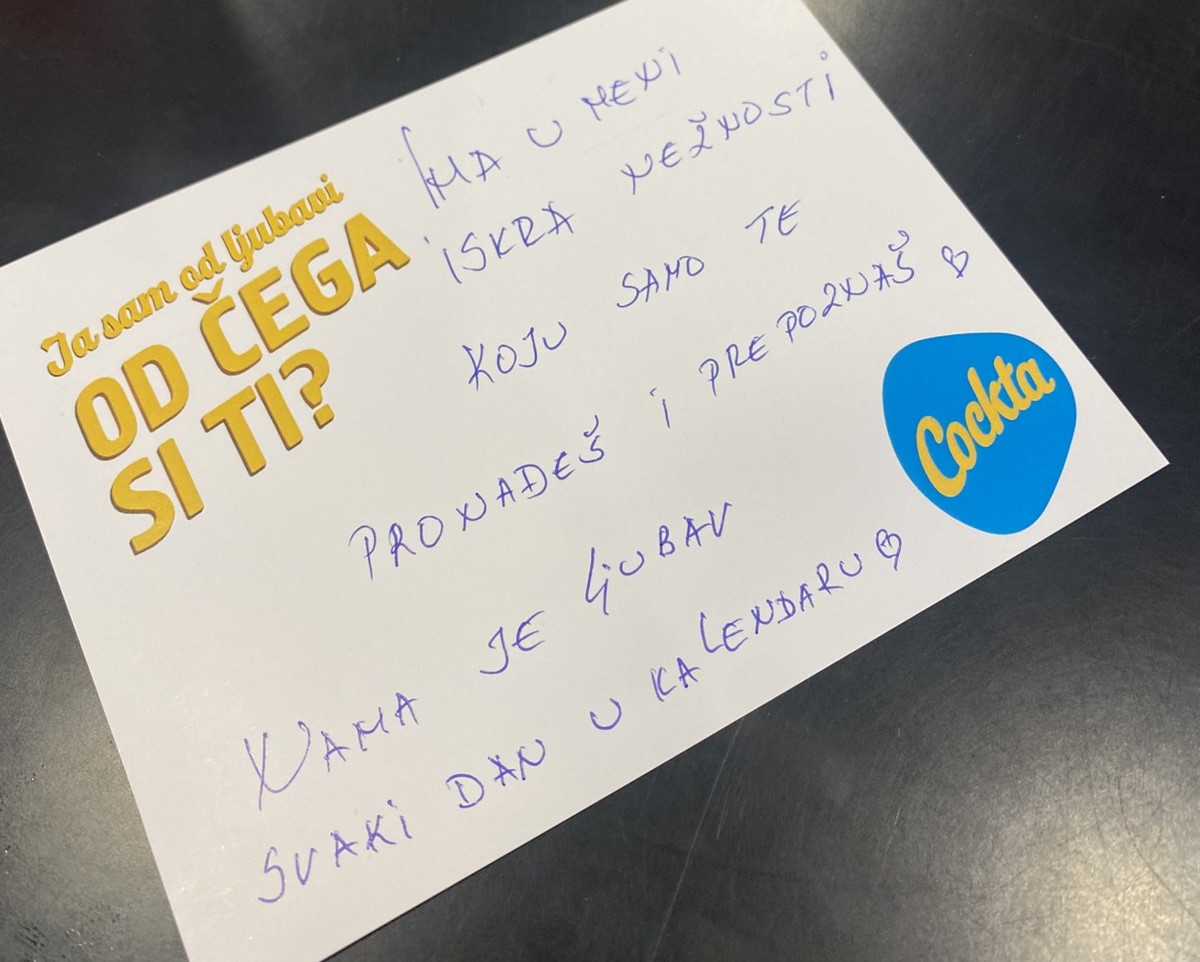 Ja sam od ljubavi
OD ČEGA
SI TI?
IMA U MENI
ISKRA NEŽNOSTI
KOJU SAMO TE
PRONAĐEŠ I PREPOZNAŠ ♡
NAMA JE LJUBAV
SVAKI DAN U KALENDARU ♡
Cockta